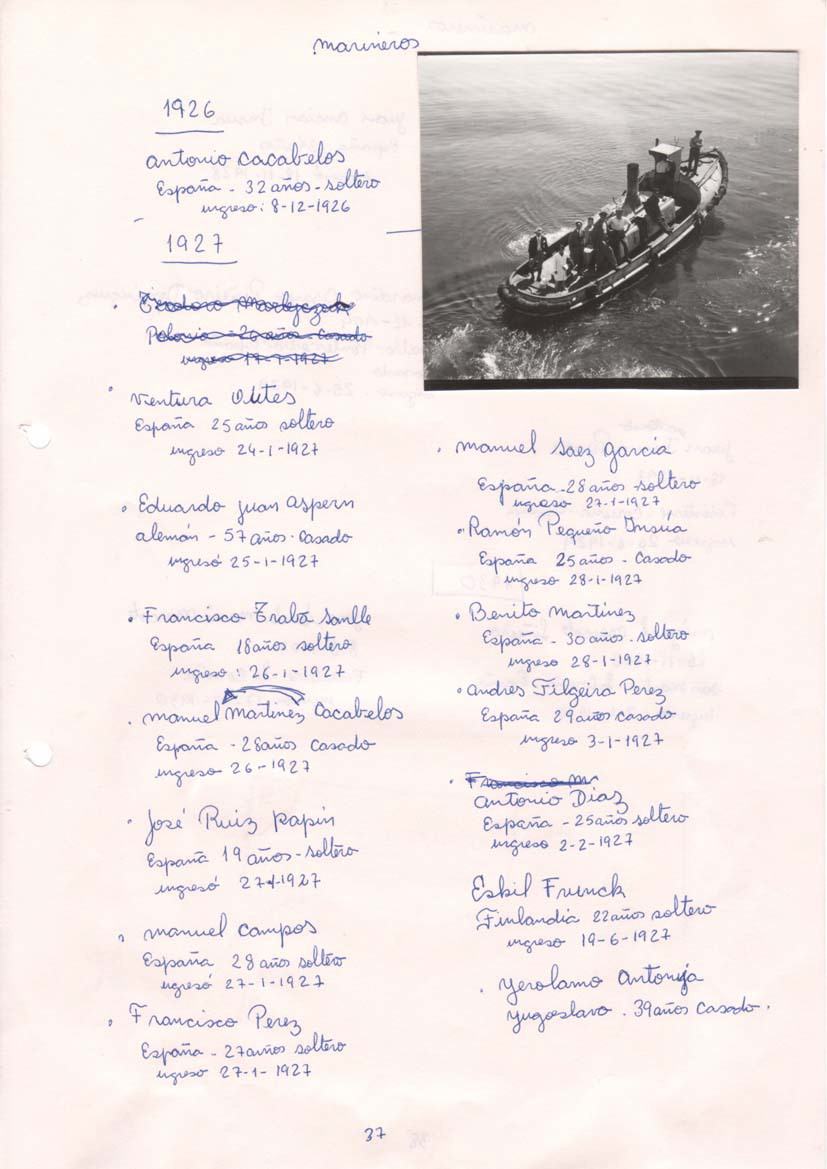 marineros
1926
Antonio Cacabelos
España - 32 años - soltero
ingreso: 8-12-1926
1927
Teodoro
Polonia - 20 años - Casado
ingreso 17-1-1927
Ventura
España 25 años soltero
ingreso 24-1-1927
Eduardo Juan Aspern
alemán - 57 años - Casado
ingresó 25-1-1927
Francisco Traba Sanlle
España 18 años soltero
ingreso: 26-1-1927
Manuel Martinez Cacabelos
España - 28 años Casado
ingreso 26-1927
José Ruiz Papin
España 19 años - soltero
ingresó 27-1-1927
Manuel Campos
España 28 años soltero
ingresó 27-1-1927
Francisco Perez
España - 27 años soltero
ingreso 27-1-1927
Manuel Saez Garcia
España - 28 años - soltero
ingreso 27-1-1927
Ramón Pequeño Insúa
España 25 años - Casado
ingreso 28-1-1927
Benito Martínez
España - 30 años - soltero
ingreso 28-1-1927
Andres Filgeira Perez
España 29 años casado
ingreso 3-1-1927
Francisco M
Antonio Díaz
España - 25 años soltero
ingreso 2-2-1927
Eskil Frunck
Finlandia 22 años soltero
ingreso 19-6-1927
Yerolamo Antonija
Yugoeslavo . 39 años Casado.
37